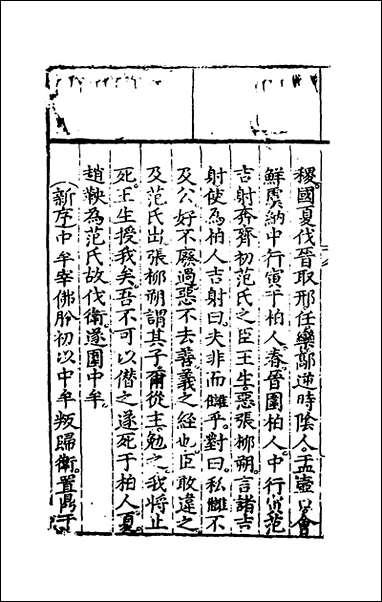 稷國夏伐晉取邢任欒鄗逆時陰人盂壺口會
鮮虞納中行寅于柏人春晉圍柏人中行寅范
吉射奔齊初范氏之臣王生惡張柳朔言諸吉
射使為柏人吉射曰夫非而讎乎對曰私讎不
及公好不廢過惡不去善義之經也臣敢違之
及范氏出張柳朔謂其子爾從主勉之我將止
死王生授我矣吾不可以僭之遂死于柏人夏
趙鞅為范氏故伐衛遂圍中牟
（新序）中牟宰佛肸初以中牟叛歸衛置鼎于